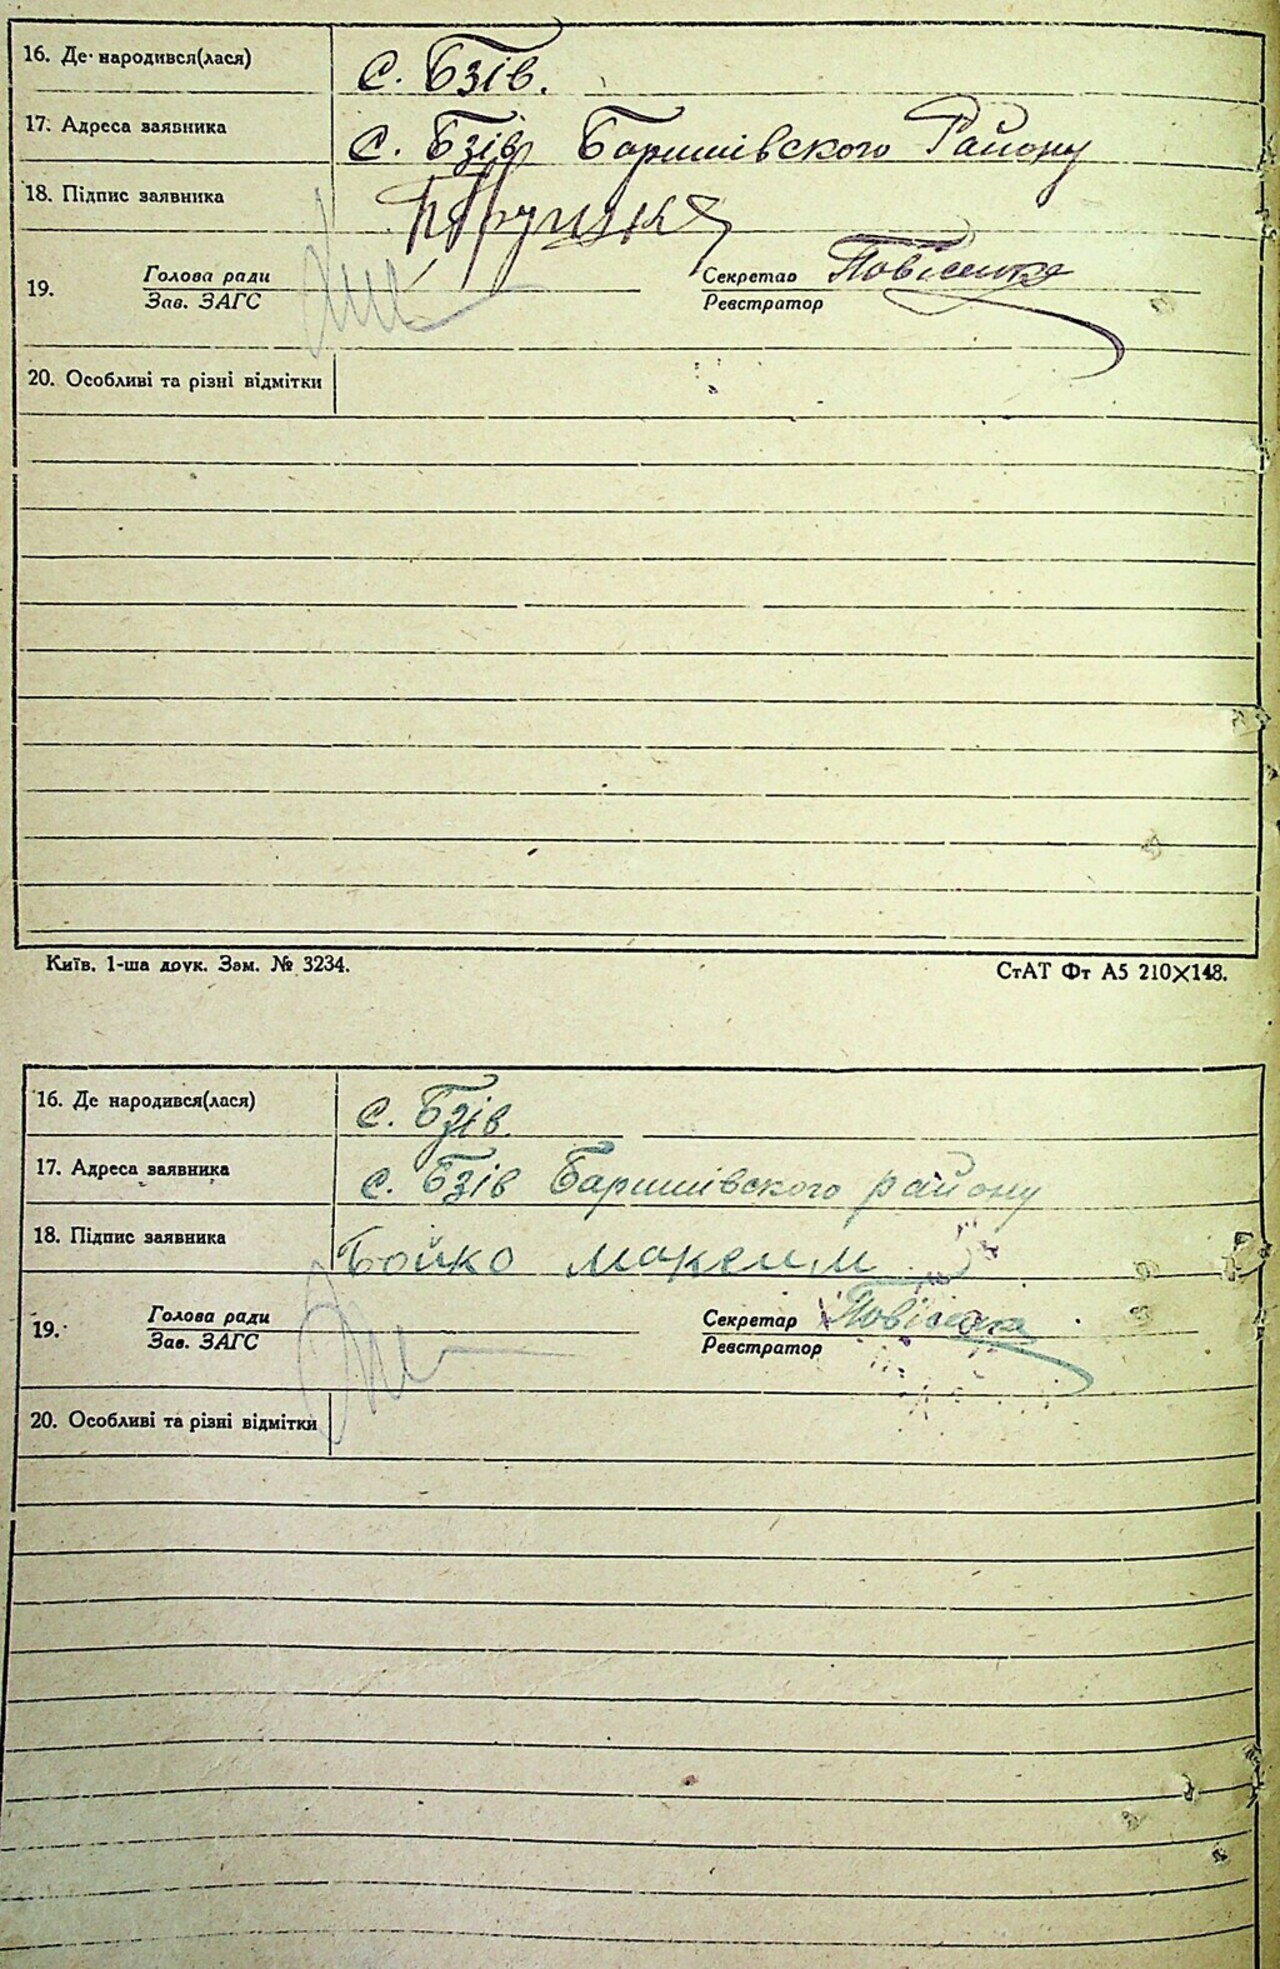 16. Де народився(лася) с. Бзів.
17. Адреса заявника с. Бзів Баришівского Району
18. Підпис заявника
19. Голова ради Секретар
Зав. ЗАГС Реєстратор
20. Особливі та різні відмітки
Київ. 1-ша друк. Зам. № 3234. СтАТ Фт А5 210×148.
16. Де народився(лася) с. Бзів.
17. Адреса заявника с. Бзів Баришівского району
18. Підпис заявника Бойко Максим
19. Голова ради Секретар
Зав. ЗАГС Реєстратор
20. Особливі та різні відмітки